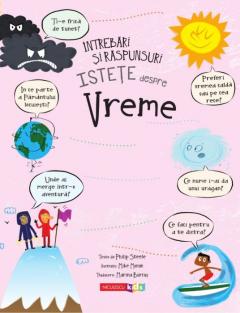 Ți-e frică
de tunet?
ÎNTREBĂRI
ȘI RĂSPUNSURI
ISTEȚE despre
Vreme
Preferi
vremea caldă
sau pe cea
rece?
În ce parte
a Pământului
locuiești?
Ce nume i-ai da
unui uragan?
Unde ai
merge într-o
aventură?
Ce faci pentru
a te distra?
Texte de Philip Steele
Ilustrații: Mike Moran
Traducere: Marina Barna
NICULESCU kids